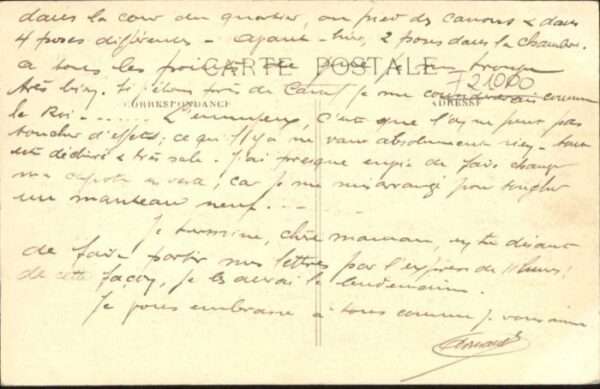 dans la cour du quartier, au pied des canons & dans
4 poses différentes - avant-hier, 2 poses dans la chambre.
à tous les points je trouve
CARTE POSTALE
21000
très bien. Si j'étais près de je me comme
CORRESPONDANCE ADRESSE
le Roi ...... L'ennuyeux, c'est que l'on ne peut pas
toucher d'effets; ce qu'il y a ne vaut absolument rien - tout
est déchiré & très sale. J'ai presque envie de faire changer
ma capote en vert, car je me pour toucher
un manteau neuf....
Je termine, chère maman, en te disant
de faire partir mes lettres par l'express de 11 heures!
de cette façon, je les aurai le lendemain.
Je vous embrasse à tous comme je vous aime